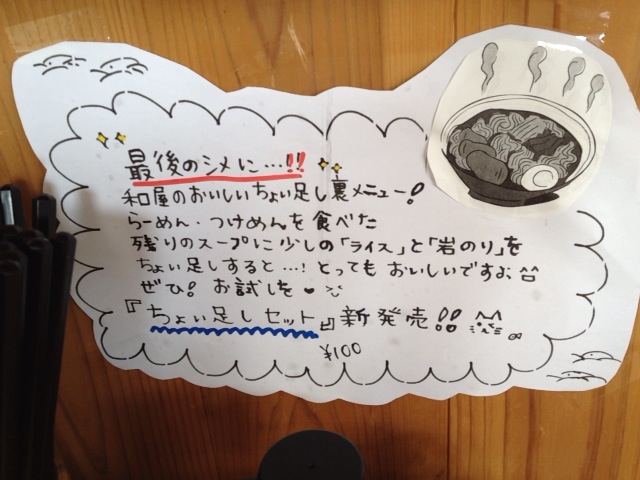 最後のシメに…!!
和屋のおいしいちょい足し裏メニュー!
らーめん・つけめんを食べた
残りのスープに少しの「ライス」と「岩のり」を
ちょい足しすると…! とってもおいしいですよ。
ぜひ! お試しを♥
『ちょい足しセット』新発売!!
¥100